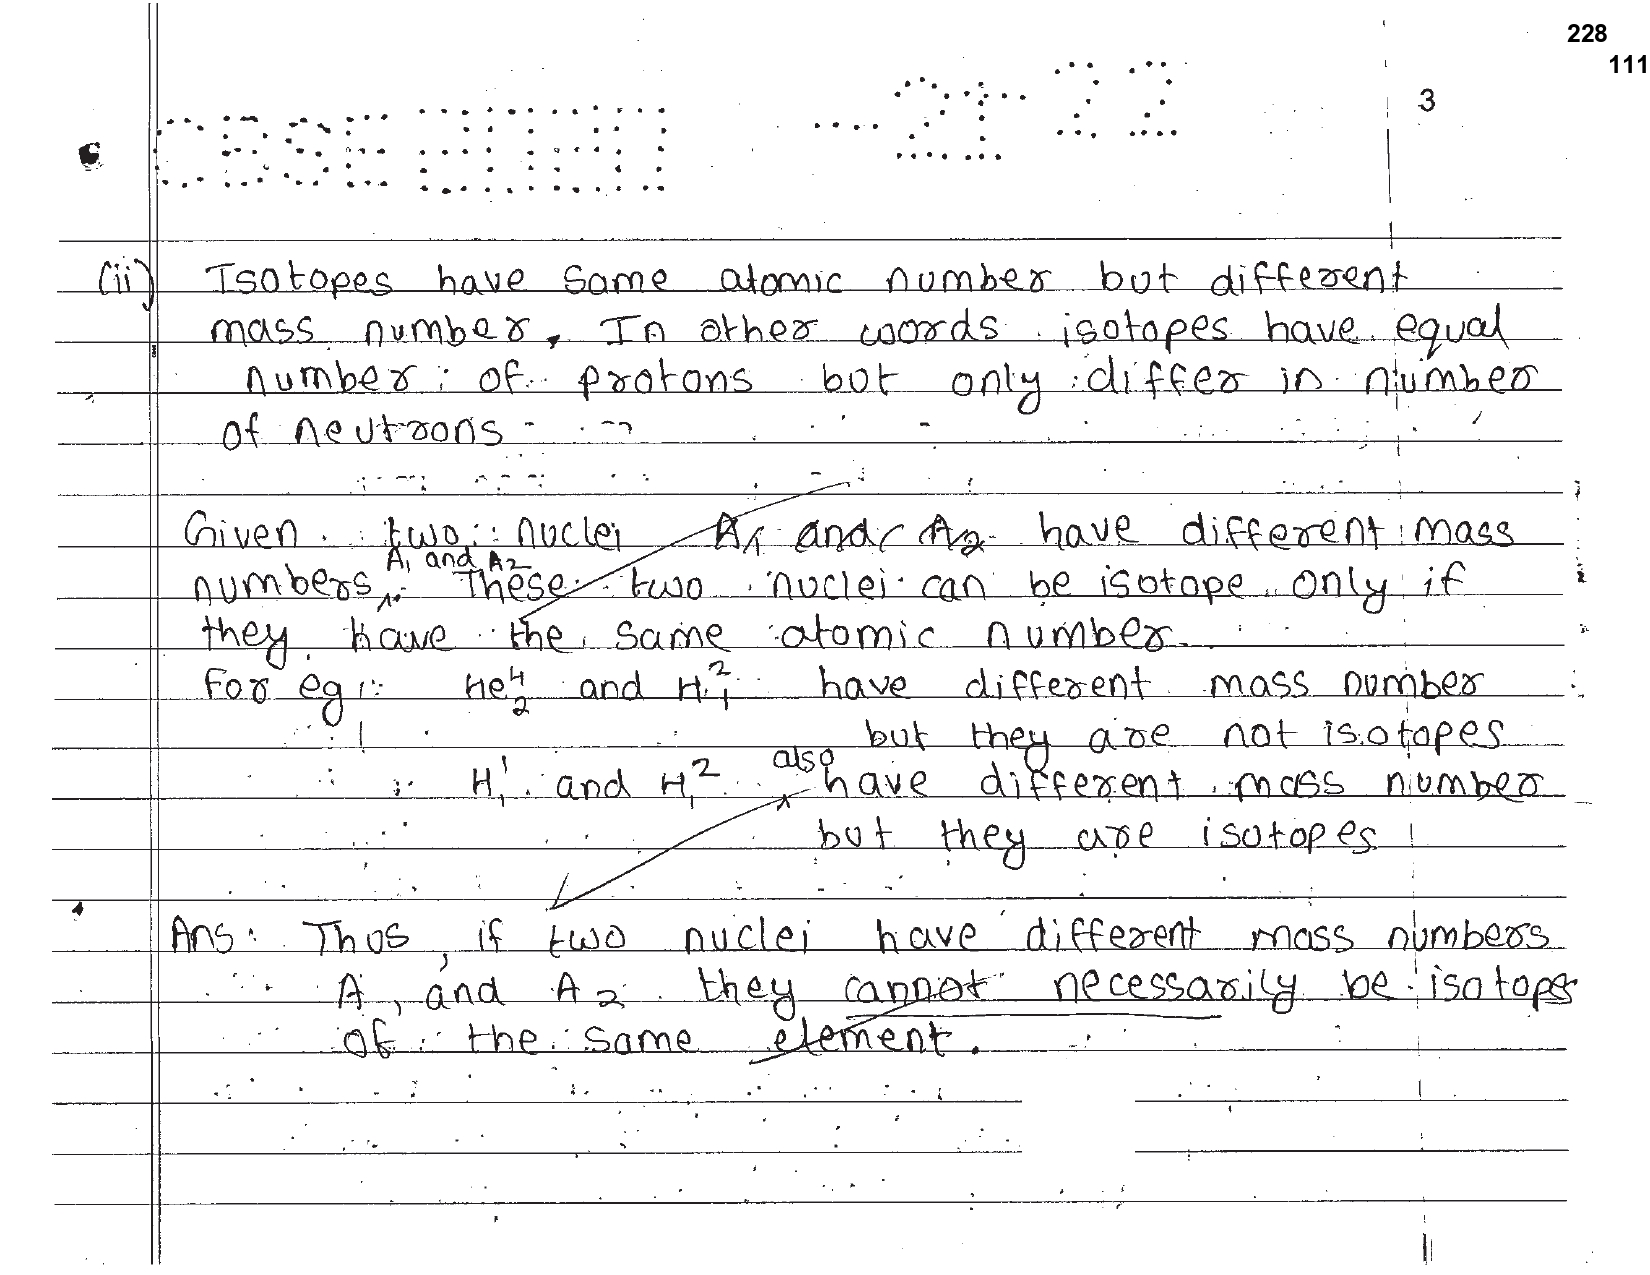 228
111
3
CBSE
21 22
(ii) Isotopes have same atomic number but different
mass number. In other words isotopes have equal
number of protons but only differ in number
of neutrons
Given two nuclei A1 and A2 have different mass
A1 and A2
numbers. These two nuclei can be isotope only if
they have the same atomic number.
For eg :- He⁴₂ and H²₁ have different mass number
but they are not isotopes
also
H¹₁ and H²₁ have different mass number
but they are isotopes
Ans: Thus, if two nuclei have different mass numbers
A1 and A2 they cannot necessarily be isotopes
of the same element.